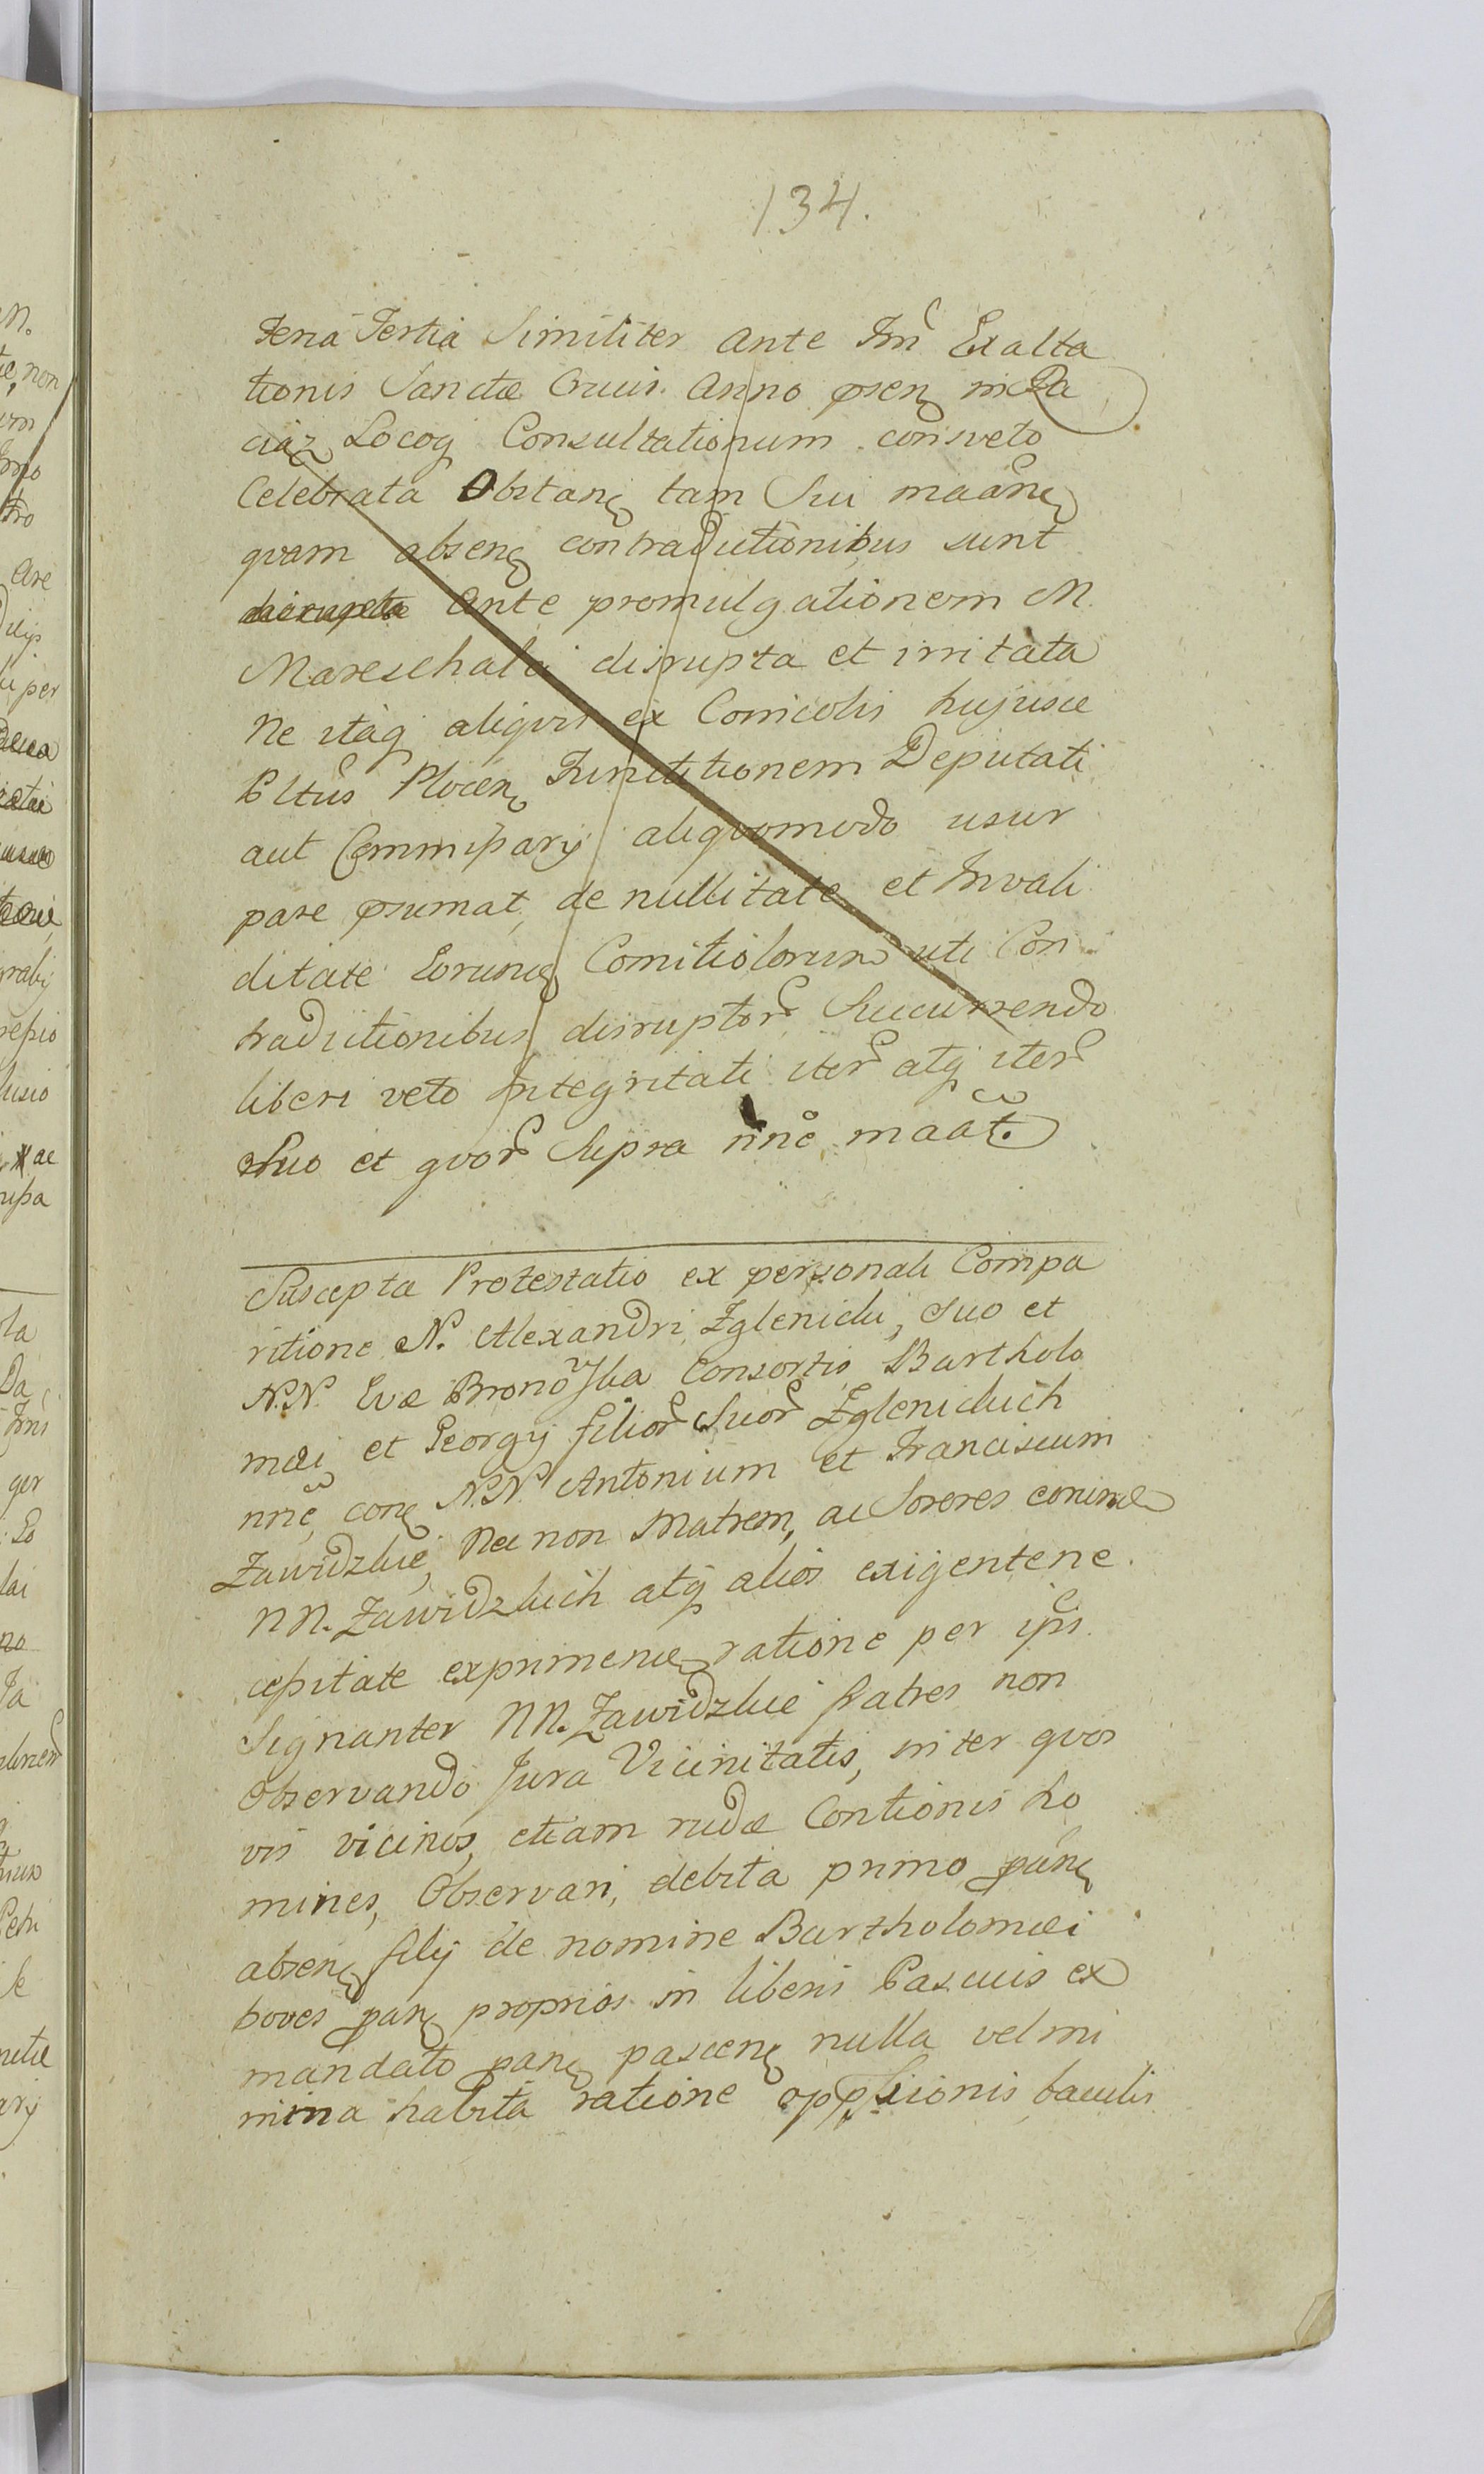 134.
Feria Tertia Similiter ante Fm̃ Exalta
tionis Sanctæ Crucis Anno præsen in Ra
ciąz Locoq Consultationum consveto
Celebrata Obstan tam Sui maãne
qvam absen contradictionibus sunt
ante promulgationem M.
Mareschalci disrupta et irritata
Ne itaq aliqvis ex Comicolis hujusce
Pltus Plocen Functionem Deputati
aut Commissarij aliqvomodo usur
pare præsumat, de nullitate et Invali
ditate Eorunde Comitiolorum uti Con
tradictionibus disruptor Sucurrendo
liberi veto Integritati iter atq iter
Suo et qvor Supra nñe maãt.
Suscepta Protestatio ex personali Compa
ritione N. Alexandri Zglenicki, Suo et
N.N. Evæ Bronowska Consortis, Bartholo
mæi et Georgij filior Suor Zglenickich
nñe, con N.N. Antonium et Franciscum
Zawidzkie, Nec non Matrem, ac Sorores eorunde
NN. Zawidzkich atq alios exigente ne
cessitate exprimen ratione per ips
Signanter NN. Zawidzkie fratres non
Observando Jura Vicinitatis, inter qvos
vis vicinos, etiam rudæ Contionis ho
mines, Observari, debita primo pane
absen filij de nomine Bartholomæi
boves pan proprios in liberis Pascuis ex
mandato pan pascen nulla vel mi
nima habita ratione oppressionis, baculis